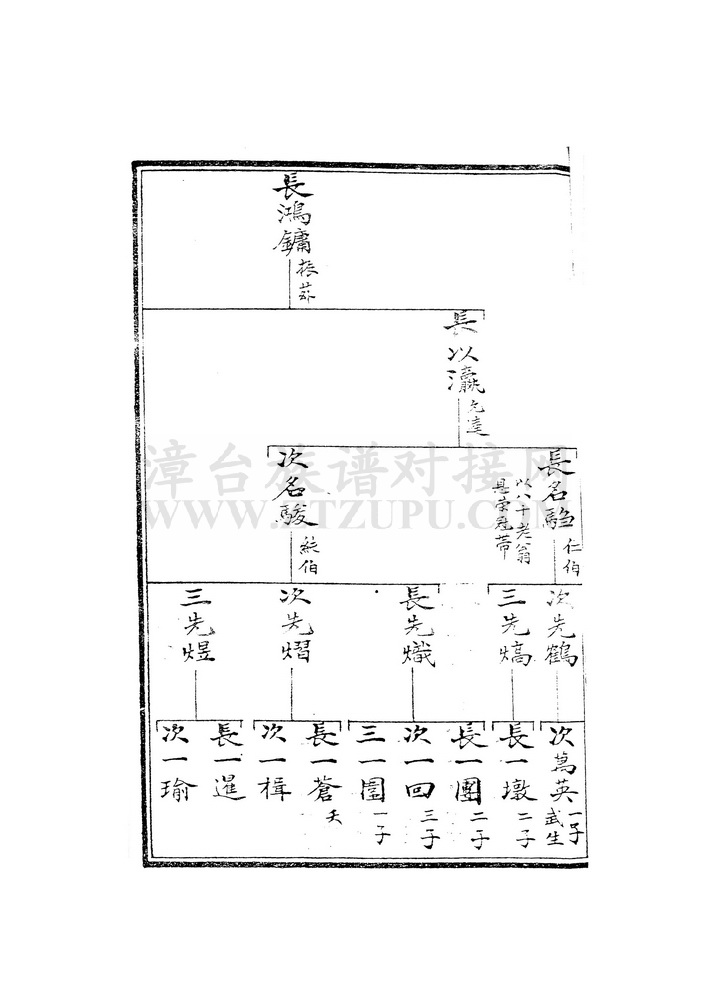 長鴻鏞 振莪
長以瀛 元達
長名騶 仁伯
以八十老翁
恩荣冠帶
次名駿 絃伯
次先鶴
三先熇
長先熾
次先熠
三先煜
次萬英 武生 一子
長一墩 二子
長一團 二子
次一回 三子
三一圍 一子
長一蒼 夭
次一楫
長一暹
次一瑜
漳台族谱对接网
WWW.ZTZUPU.COM